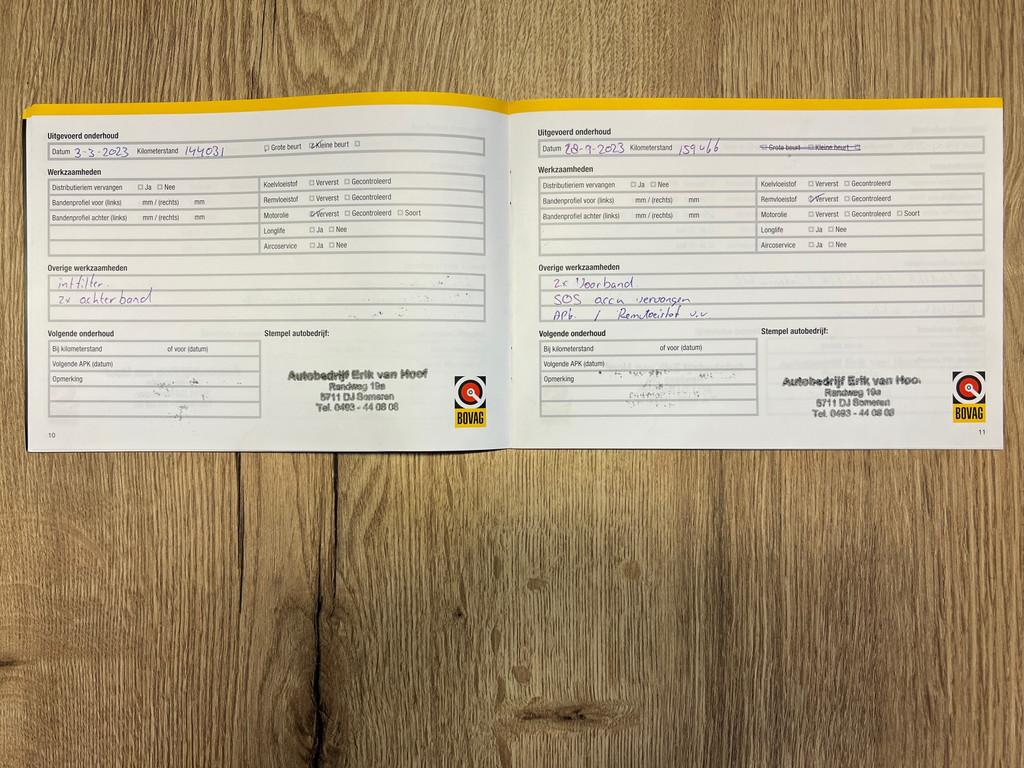 Uitgevoerd onderhoud
Datum 3-3-2023 Kilometerstand 144031 Grote beurt Kleine beurt
Werkzaamheden
Distributieriem vervangen Ja Nee
Bandenprofiel voor (links) mm / (rechts) mm
Bandenprofiel achter (links) mm / (rechts) mm
Koelvloeistof Ververst Gecontroleerd
Remvloeistof Ververst Gecontroleerd
Motorolie Ververst Gecontroleerd Soort
Longlife Ja Nee
Aircoservice Ja Nee
Overige werkzaamheden
intfilter.
2x achterband
Volgende onderhoud
Bij kilometerstand of voor (datum)
Volgende APK (datum)
Opmerking
Stempel autobedrijf:
Autobedrijf Erik van Hoof
Randweg 19a
5711 DJ Someren
Tel. 0493 - 44 08 08
BOVAG
10
Uitgevoerd onderhoud
Datum 28-9-2023 Kilometerstand 159466 Grote beurt Kleine beurt
Werkzaamheden
Distributieriem vervangen Ja Nee
Bandenprofiel voor (links) mm / (rechts) mm
Bandenprofiel achter (links) mm / (rechts) mm
Koelvloeistof Ververst Gecontroleerd
Remvloeistof Ververst Gecontroleerd
Motorolie Ververst Gecontroleerd Soort
Longlife Ja Nee
Aircoservice Ja Nee
Overige werkzaamheden
2x Voorband
SOS accu vervangen
APK. / Remvloeistof v.v
Volgende onderhoud
Bij kilometerstand of voor (datum)
Volgende APK (datum)
Opmerking
Stempel autobedrijf:
Autobedrijf Erik van Hoo
Randweg 19a
5711 DJ Someren
Tel. 0493 - 44 08 08
BOVAG
11